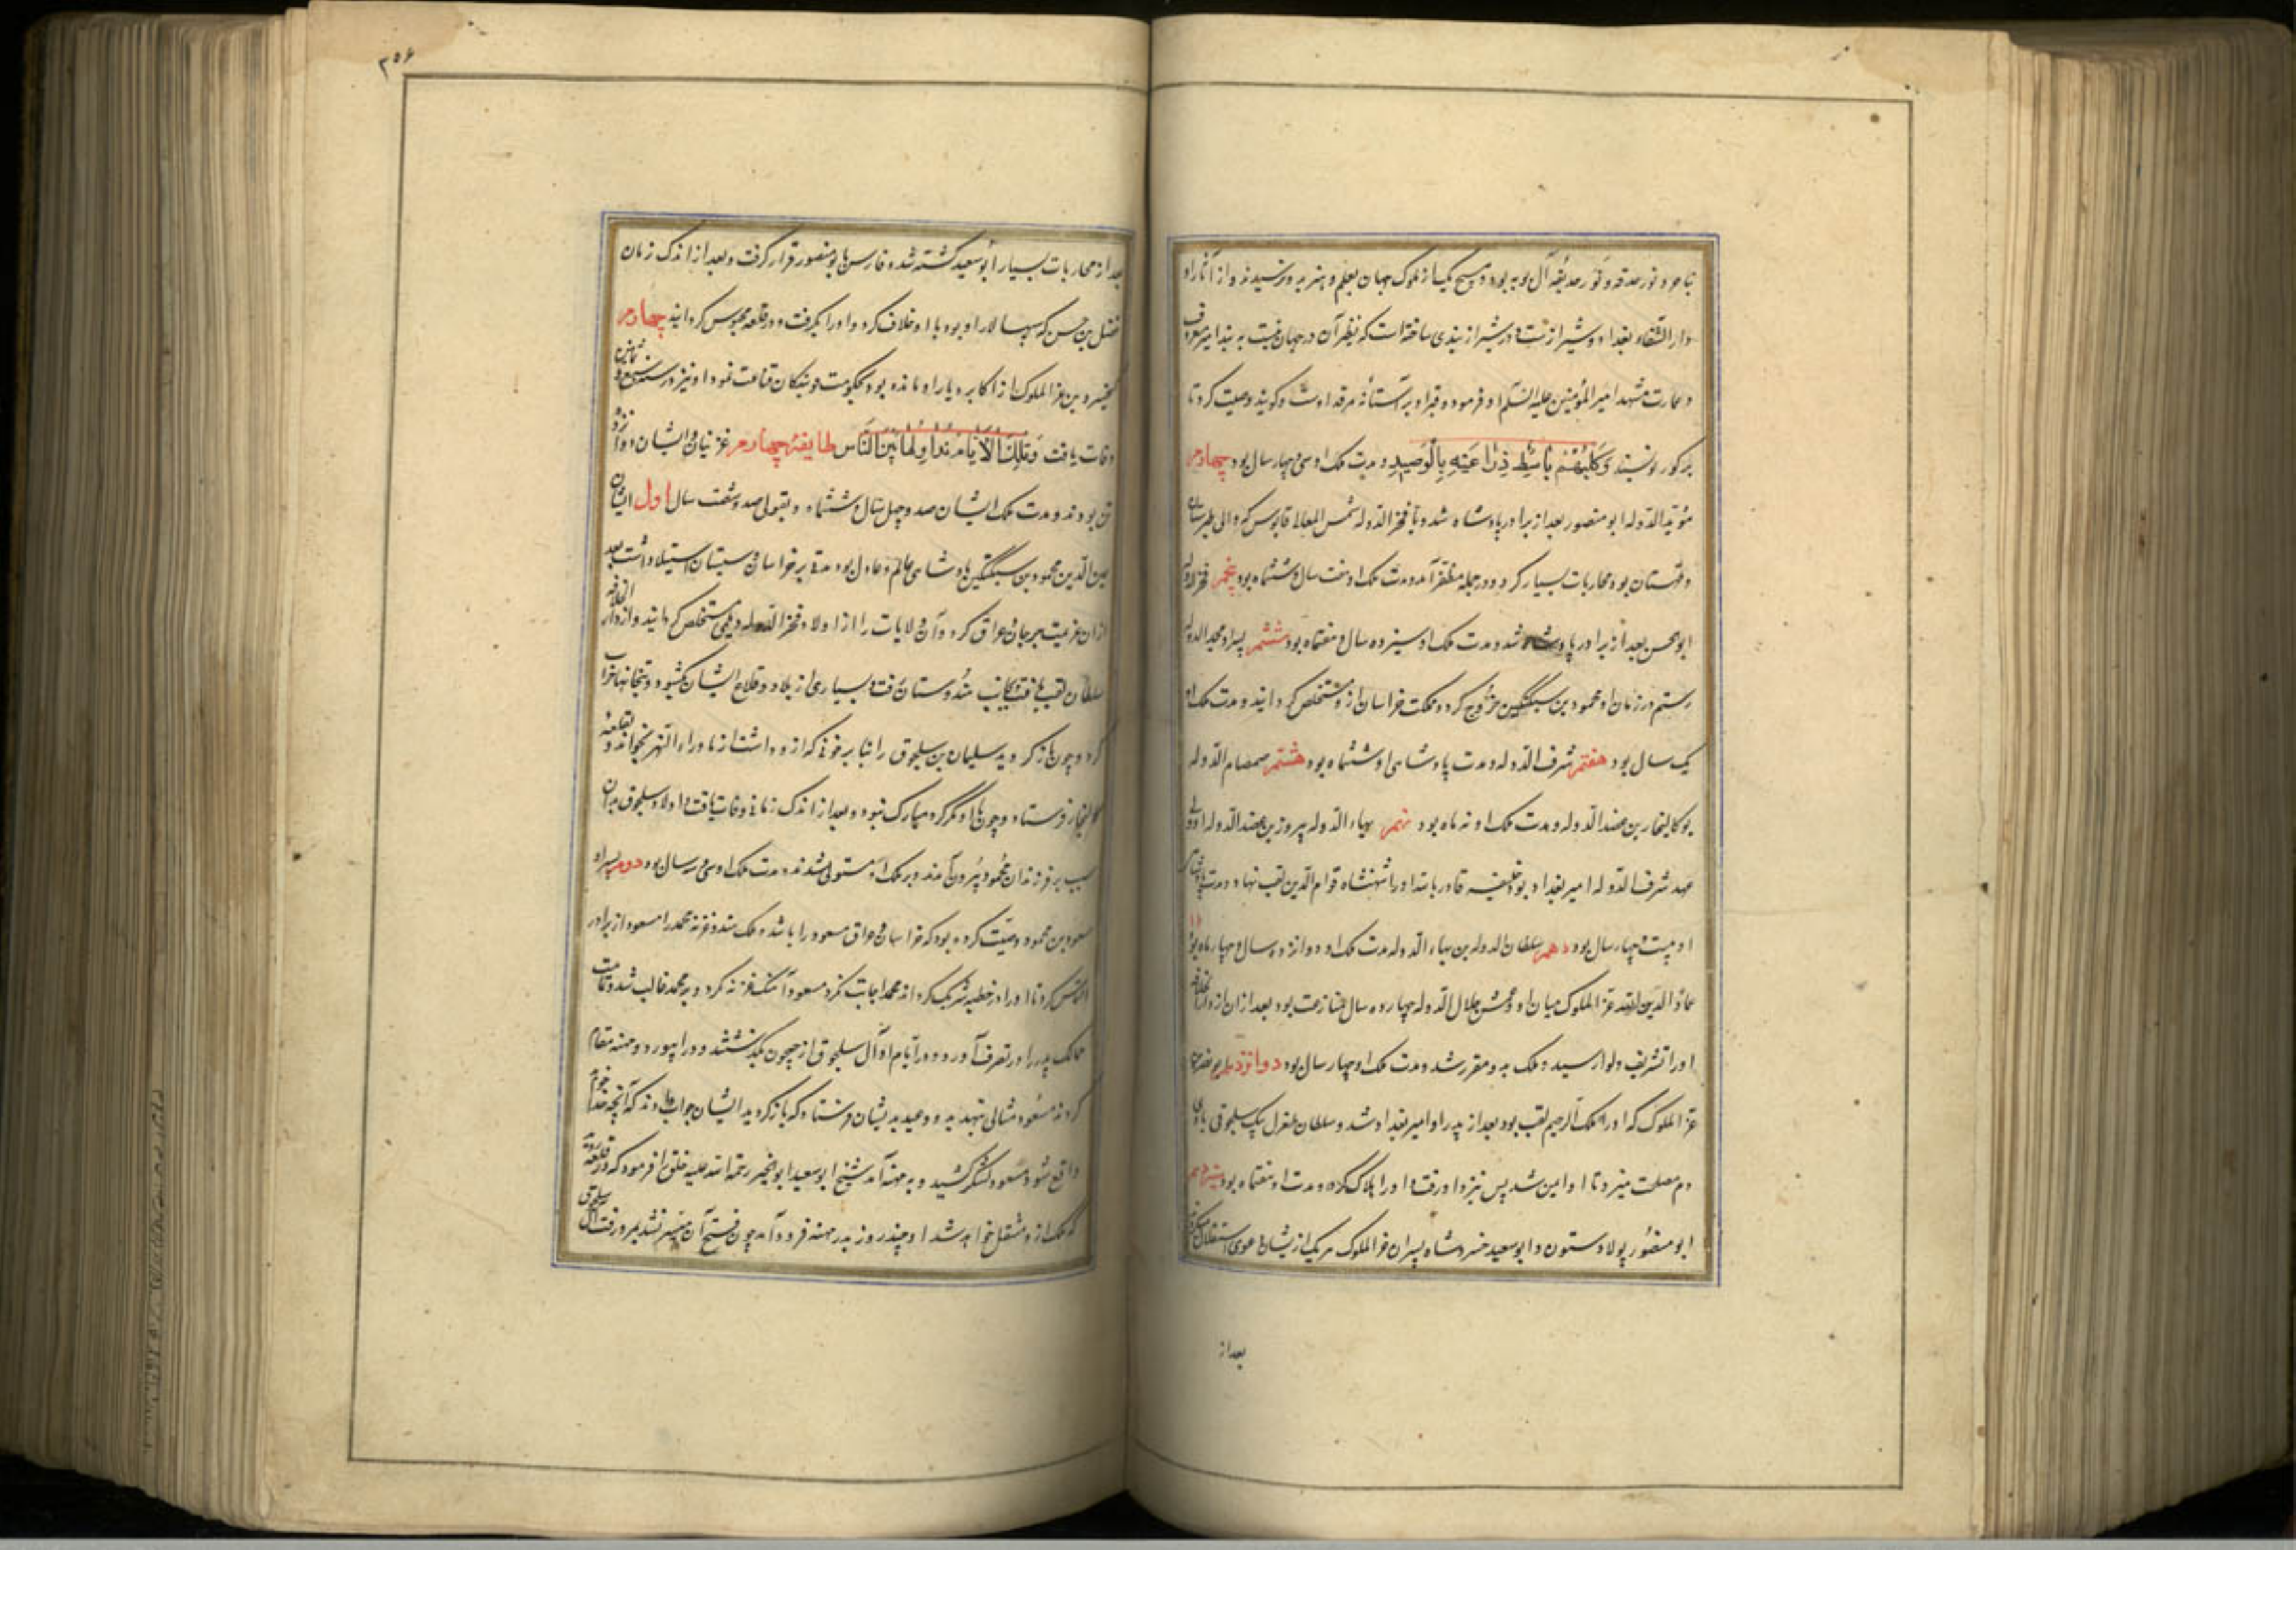 نامور و نور حدقه و نور حدیقه آل بویه بود و هیچ یک از ملوک جهان بعلم و هنر بدو نرسیدند و از آثار او
دار الشفاء بغداد و شیراز است و در شیراز بندی ساخته است که نظیر آن در جهان نیست به بند امیر معروف
و عمارت مشهد امیر المؤمنین علیه السّلم او فرموده و قبر او بر آستانهٔ مرقد اوست و گویند وصیت کرد تا
بر گور نوشتند وَكَلْبُهُمْ بَاسِطٌ ذِرَاعَيْهِ بِالْوَصِيدِ و مدت ملک او سی و چهار سال بود چهارم
مؤید الدّوله ابو منصور بعد از برادر پادشاه شد و با فخر الدّوله شمس المعالی قابوس که والی طبرستان
و قهستان بود محاربات بسیار کرد و در جمله مظفر آمد و مدت ملک او هفت سال و ششماه بود پنجم فخر الدوله
ابو الحسن بعد از برادر پادشاه شد و مدت ملک او سیزده سال و هفتماه بود ششم پسر او مجد الدوله
رستم در زمان او محمود بن سبکتگین خروج کرد و مملکت خراسان ازو مستخلص گردانید و مدت ملک او
یک سال بود هفتم شرف الدّوله و مدت پادشاهی او ششماه بود هشتم صمصام الدّوله
بو کالنجار بن عضد الدّوله و مدت ملک او نه ماه بود نهم بهاء الدّوله پیروز بن عضد الدّوله او ولی
عهد شرف الدّوله امیر بغداد بود خلیفه قادر بالله او را شهنشاه قوام الدّین لقب نهاد و مدت پادشاهی
او بیست و چهار سال بود دهم سلطان الدوله بن بهاء الدّوله مدت ملک او دوازده سال و چهار ماه بود
عماد الدین الله عز الملوک میان او و عمش جلال الدّوله چهارده سال منازعت بود بعد از آن از دار الخلافه
او را تشریف و لوا رسید و ملک بدو مقرر شد و مدت ملک او چهار سال بود دوازدهم ابو نصر بن
عز الملوک که او را ملک الرحیم لقب بود بعد از پدر او امیر بغداد شد و سلطان طغرل بیک سلجوقی با وی
دم مصلحت میزد تا او ایمن شد پس نزد او رفت و او را هلاک کرد و مدت او هفتماه بود سیزدهم
ابو منصور پولاد ستون و ابو سعید خسرو شاه پسران عز الملوک هر یک از یشان دعوی استقلال میکردند
بعد از
۲۵۶
بعد از محاربات بسیار ابو سعید کشته شد و فارس با بو منصور قرار گرفت و بعد از اندک زمان
فضل بن حسن که سپهسالار او بود با او خلاف کرد و او را بگرفت و در قلعه محبوس گردانید چهاردهم
کیخسرو بن عز الملوک از اکابر دیار او مانده بود بحکومت نوبندکان قناعت نمود او نیز در سنه سبع و ثمانین
وفات یافت وَتِلْكَ الْأَيَّامُ نُدَاوِلُهَا بَيْنَ النَّاسِ طایفهٔ چهارم غزنیان و ایشان دوازده
تن بودند و مدت ملک ایشان صد و چهل سال و ششماه و بقولی صد و شصت سال اول ایشان
یمین الدّین محمود بن سبکتگین پادشاهی عالم و عادل بود مدتی بر خراسان و سیستان استیلا داشت بعد
از آن عزیمت جرجان و عراق کرد و آن ولایات را از اولاد فخر الدّوله دیلمی مستخلص گردانید و از دار الخلافه
سلطان لقب یافت و بجانب هندوستان رفت و بسیاری از بلاد و قلاع ایشان بگشود و بتخانها خراب
کرد و چون باز گردید سلیمان بن سلجوق را بنا بر خوفی که ازو داشت از ماوراء النهر بخواند و بقلعه
کالنجار فرستاد و چون با او مکر کرد مبارک نبود و بعد از اندک زمانی وفات یافت و اولاد سلجوق بدان
سبب بر فرزندان محمود بیرون آمدند و بر ملک او مستولی شدند و مدت ملک او سی و سه سال بود دوم پسر او
مسعود بن محمود وصیّت کرده بود که خراسان و عراق مسعود را باشد و ملک هند و غزنه محمد را مسعود از برادر
التماس کرد تا او را در خطبه شریک گرداند محمد اجابت نکرد مسعود آهنگ غزنه کرد و بر محمد غالب شد و تمامت
ممالک پدر را در تصرف آورد و در ایام او آل سلجوق از جیحون بگذشتند و در ابیورد و مهنه مقام
کردند مسعود مثالی بتهدید و وعید بدیشان فرستاد که باز گردید ایشان جواب دادند که آنچه خدا خواهد
واقع شود مسعود لشکر کشید و به مهنه آمد شیخ ابو سعید ابو الخیر رحمة الله علیه خلق را فرمود که در قلعه روند
که ملک ازو منتقل خواهد شد او چند روز بدر مهنه فرود آمد چون فتح آن میسر نشد بمرو رفت آل سلجوق